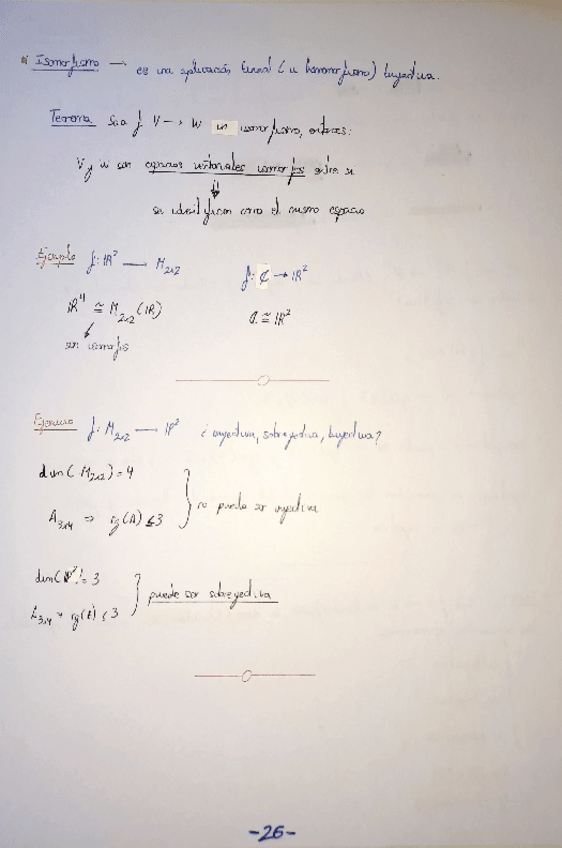 Isomorfismo → es una aplicación lineal (u homomorfismo) biyectiva.
Teorema Sea f: V → W un isomorfismo, entonces:
V y W son espacios vectoriales isomorfos entre si
↓
se identifican como el mismo espacio
Ejemplo f: IR² → M₂ₓ₂ f: ℂ → IR²
IR⁴ ≅ M₂ₓ₂(IR) ℂ ≅ IR²
son isomorfos
Ejercicio f: M₂ₓ₂ → IP² ¿inyectiva, sobreyectiva, biyectiva?
dim(M₂ₓ₂) = 4
A₃ₓ₄ ⇒ rg(A) ≤ 3 } no puede ser inyectiva
dim(IP²) = 3
A₃ₓ₄ → rg(A) ≤ 3 } puede ser sobreyectiva
-26-